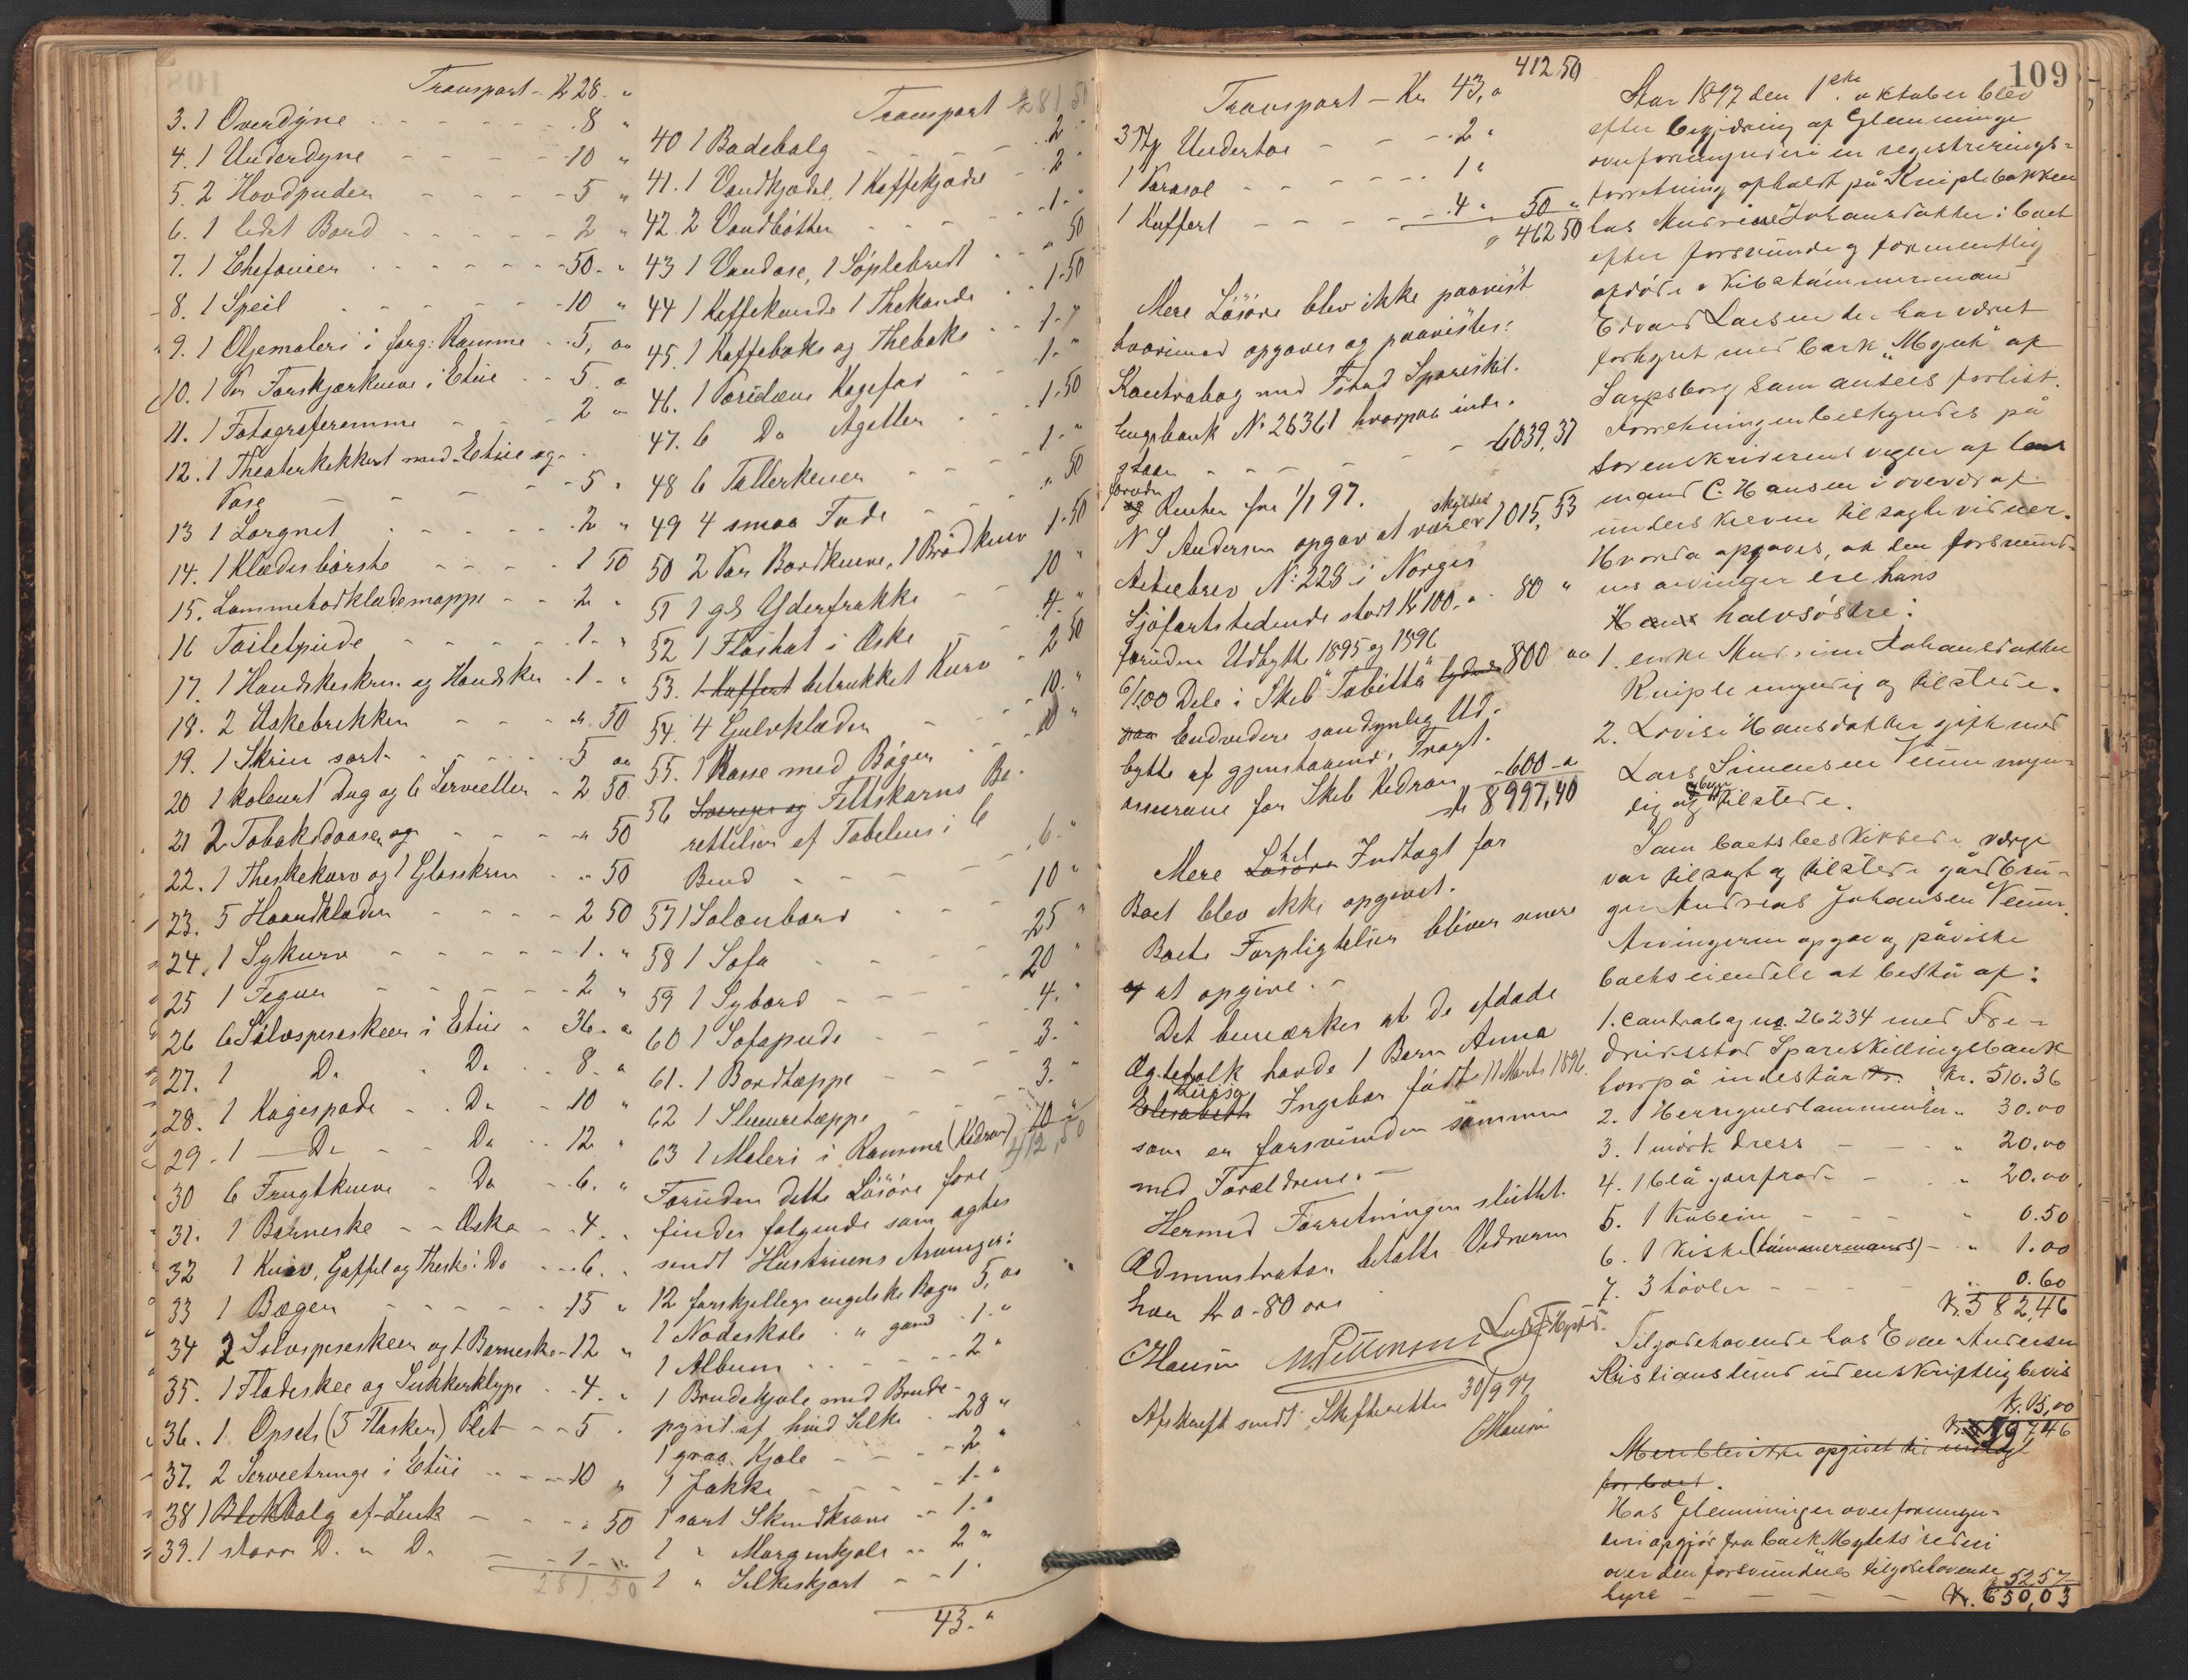 Transport - Kr 28. "
3. 1 Overdyne - - - 8 "
4. 1 Underdyne - - - 10 "
5. 2 Hovdpuder - - - 5 "
6. 1 lidet Bord - - - 2 "
7. 1 Chefonier - - - 50. "
8. 1 Speil - - - 10 "
9. 1 Oljemaleri i forg: Ramme - - 5, "
10. 1 Par Forskjærkneve i Etue - - 5. "
11. 1 Fotograferamme - - 2 "
12. 1 Theaterkikkert med Etue og
Vase - - - 5 "
13 1 Lorgnet - - - 2 "
14. 1 Klædesbørste - - - 1 50
15. Lommetorklædemappe - - 2 "
16 Toiletpude - - - 1 - "
17. 1 Handskeskrin og Handsker - 1 - "
18. 2 Askebrikker - - - " 50
19. 1 Skrin sort - - - 5 "
20 1 koleurt Dug og 6 Servietter - 2 50
21 2 Tobaksdaaser - - - " 50
22. 1 Theskekurv og 1 Glasskrin - - " 50
23. 5 Haandklæder - - - 2 50
24. 1 Sykurv - - - 1. "
25 1 Figur - - - 2 "
26 6 Sølvspiseskeer i Etue - 36. "
27. 1 Do Do - 8. "
28. 1 Kagespade - Do - 10 "
29. 1 - Do - Do - 12 "
30 6 Frugtkneve - Do - 6. "
31. 1 Barneske - - Æske - - 4 "
32 1 Kniv, Gaffel og Theske i Do - - 6. "
33 1 Bæger - - - 15 "
34 2 Sølvspiseskeer og 1 Barneske - 12 "
35. 1 Flødeskee og Sukkerklype - - 4. "
36. 1 Opsats (5 Flasker) Plet - - 5 .
37. 2 Servietringe i Etui - - - 10 "
38 1 Blekbalg af Zink - - - " 50
39. 1 større Do " Do - - 1 - "
281,50
Transport 281,50
40 1 Badebalg - - - 2 "
41. 1 Vandkjedel, 1 Kaffekjedel - - 2 "
42 2 Vandbøtter - - - 1 - "
43 1 Vandøse, 1 Søplebret - - " 50
44 1 Kaffekande 1 Thekande - - 1-50
45. 1 Kaffeboks og Theboks - - 1 - "
46. 1 Porselæns Kagefad - - 1. "
47. 6 Do Agetter - - 1-50
48 6 Tallerkener - - - 1 - "
49 4 smaa Fade - - " 50
50 2 Par Bordkneve, 1 Brødkurv 1-50
51 1 gl Yderfrakke - - 10 "
52 1 Floshat i Æske - - 4. "
53. 1 Kuffert betrukket Kurv - 2 50
54. 4 Gulvklæder - - 10. "
55. 1 Kasse med Bøger - - 10 "
56 Sverges og Feltskærns Be-
rettelser af Tobelius i 6
Bind - - - 6. "
57 1 Salonbord - - - 10 "
58 1 Sofa - - - 25 "
59 1 Sybord - - - 20 "
60 1 Sofapude - - - 4. "
61. 1 Bordtæppe - - - 3. "
62 1 Slumretæppe - - - 3. "
63 1 Maleri i Ramme (Kedron) 10 "
412,50
Foruden dette Løsøre fore
findes følgende som agtes
sendt Hustruens Arvinger:
12 forskjellige engelske Bøger 5, "
1 Nodeskole " gam 1. "
1 Album - - - 2 "
1 Brudekjole med Brude-
pynt af hvid Silke - 28 "
1 graa Kjole - - - 2 "
1 Jakke - - - 1 - "
1 sort Skindkrave - - 1. "
1 " Morgenkjole - - 2 "
1 " Silkeskjørt - - 1 "
43. "
412 50
Transport - Kr 43, "
3 Stk Undertøi - - - 2 "
1 Parasol - - - 1 "
1 Kuffert - - - 4 " 50 "
" 462 50
Mere Løsøre blev ikke paavist
hvorimod opgaves og paavistes:
Kontrabog med F.stad Spareskil-
lingsbank No 26361 hvorpaa inde-
staar - - - 6039,37
foruden
og Renter fra 1/1 97.
N S Andersen opgav at være skyldig 1015,53
Actiebrev No: 228 i Norges
Sjøfartstidende stort Kr 100. " 80 "
foruden Udbytte 1895 og 1896
6/100 Dele i Skib "Tabitha" lydende 800 "
paa Endvidere sandsynlig Ud-
bytte af gjenstaaende Fragt.
assurance for Skib Kedron - 600 "
Kr 8997,40
Mere Løsøre hel Indtagt for
Boet blev ikke opgivet.
Boets Forpligtelser bliver senere
at opgive. -
Det bemærkes at de afdøde
Ægtefolk havde 1 Barn Anna
Elisabeth Luisa Ingebor født 11 Marts 1896
som er forsvunden sammen
med Forældrene. -
Hermed Forretningen sluttet.
Administrator betalte Vidnerne
hver Kr 0-80 øre
CHansen
Afskrift sendt Skifteretten 30/9 97
CHansen
109
Aar 1897 den 1ste oktober blev
efter begjæring af Glemminge
overformynderi en registrerings-
forretning afholdt på Kniplebakken
hos Andrine Johansdatter i boet
efter forsvunde og formentlig
afdøde Skibstømmermand
Edvard Larsen der har været
forhyret med bark "Mynt" af
Sarpsborg som ansees forlist.
Forretningen bestyredes på
sorenskriverens vegne af lens
mand C. Hansen i overvær af
underskrevne tilsagte vidner.
Hvorda opgaves, at den forsvund-
nes arvinger ere hans
Hans halvsøstre:
1. enke Andrine Johansdatter
Kniple myndig og tilstede.
2. Lovise Hansdatter gift med
Lars Simensen Veum myn-
dig og tilstede.
Som boets beskikkede værge
var tilsagt og tilstede gårdbru-
ger Andreas Johansen Veum.
Arvingerne opgav og påviste
boets eiendele at bestå af:
1. Contrabog no. 26234 med Fre-
driksstad Spareskillingsbank
hvorpå indestår Kr. Kr. 510.36
2. 1 Herreguldlommeuhr " 30.00
3. 1 mørk dress - - " 20.00
4. 1 blå yderfrak - - " 20.00
5. 1 Kubein - - - " 0.50
6. 1 Kiste (tømmermands) - " 1.00
7. 3 høvler - - - " 0.60
Kr. 582,46
Tilgodehavende hos Even Andersen
Kristianslund uden skriftlig bevis
Kr. 15,00
Kr. 597 46
Mere blev ikke opgivet til indtægt
for boet.
Hos Glemminges overformyn-
deri opgjør fra bark Mynts rederi
over den forsvundnes tilgodehavende
hyre - - - 52.57
Kr. 650,03